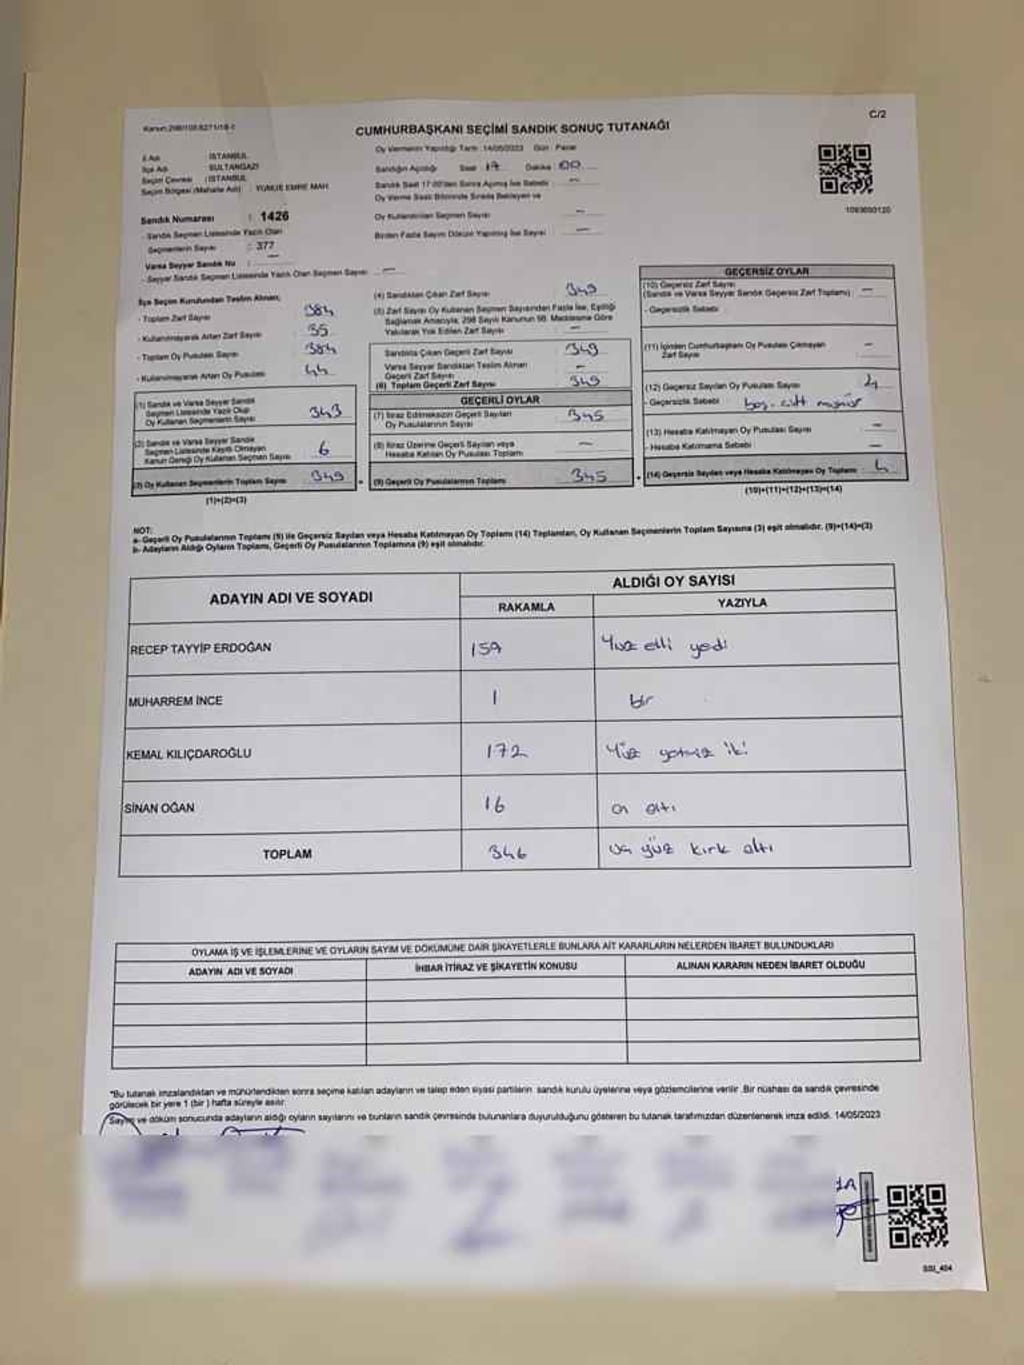 C/2
CUMHURBAŞKANI SEÇİMİ SANDIK SONUÇ TUTANAĞI
Oy Vermenin Yapıldığı Tarih : 14/05/2023 Gün : Pazar
İl Adı : İSTANBUL
İlçe Adı : SULTANGAZİ
Seçim Çevresi : İSTANBUL
Seçim Bölgesi (Mahalle Adı) YUNUS EMRE MAH.
Sandığın Açıldığı Saat : 17 Dakika : 00
Sandık Saat 17:00'den Sonra Açılmış İse Sebebi : —
Oy Verme Saati Bitiminde Sırada Bekleyen ve
Oy Kullandırılan Seçmen Sayısı : —
Birden Fazla Sayım Döküm Yapılmış İse Sayısı : —
1093600120
Sandık Numarası : 1426
- Sandık Seçmen Listesinde Yazılı Olan
Seçmenlerin Sayısı : 377
Varsa Seyyar Sandık No : —
- Seyyar Sandık Seçmen Listesinde Yazılı Olan Seçmen Sayısı : —
İlçe Seçim Kurulundan Teslim Alınan;
- Toplam Zarf Sayısı : 384
- Kullanılmayarak Artan Zarf Sayısı : 35
- Toplam Oy Pusulası Sayısı : 384
- Kullanılmayarak Artan Oy Pusulası : 44
(1) Sandık ve Varsa Seyyar Sandık
Seçmen Listesinde Yazılı Olup
Oy Kullanan Seçmenlerin Sayısı : 343
(2) Sandık ve Varsa Seyyar Sandık
Seçmen Listesinde Kayıtlı Olmayan
Kanun Gereği Oy Kullanan Seçmen Sayısı : 6
(3) Oy Kullanan Seçmenlerin Toplam Sayısı : 349
(1)+(2)=(3)
(4) Sandıktan Çıkan Zarf Sayısı : 349
(5) Zarf Sayısı Oy Kullanan Seçmen Sayısından Fazla İse, Eşitliği
Sağlamak Amacıyla, 298 Sayılı Kanunun 98. Maddesine Göre
Yakılarak Yok Edilen Zarf Sayısı : —
Sandıkta Çıkan Geçerli Zarf Sayısı : 349
Varsa Seyyar Sandıktan Teslim Alınan
Geçerli Zarf Sayısı : —
(6) Toplam Geçerli Zarf Sayısı : 349
GEÇERLİ OYLAR
(7) İtiraz Edilmeksizin Geçerli Sayılan
Oy Pusulalarının Sayısı : 345
(8) İtiraz Üzerine Geçerli Sayılan veya
Hesaba Katılan Oy Pusulası Toplamı : —
(9) Geçerli Oy Pusulalarının Toplamı : 345
GEÇERSİZ OYLAR
(10) Geçersiz Zarf Sayısı
(Sandık ve Varsa Seyyar Sandık Geçersiz Zarf Toplamı) : —
- Geçersizlik Sebebi :
(11) İçinden Cumhurbaşkanı Oy Pusulası Çıkmayan
Zarf Sayısı : —
(12) Geçersiz Sayılan Oy Pusulası Sayısı : 4
- Geçersizlik Sebebi : boş - çift mühür
(13) Hesaba Katılmayan Oy Pusulası Sayısı : —
- Hesaba Katılmama Sebebi : —
(14) Geçersiz Sayılan veya Hesaba Katılmayan Oy Toplamı : 4
(10)+(11)+(12)+(13)=(14)
NOT:
a- Geçerli Oy Pusulalarının Toplamı (9) ile Geçersiz Sayılan veya Hesaba Katılmayan Oy Toplamı (14) Toplamları, Oy Kullanan Seçmenlerin Toplam Sayısına (3) eşit olmalıdır. (9)+(14)=(3)
b- Adayların Aldığı Oyların Toplamı, Geçerli Oy Pusulalarının Toplamına (9) eşit olmalıdır.
ADAYIN ADI VE SOYADI ALDIĞI OY SAYISI
RAKAMLA YAZIYLA
RECEP TAYYİP ERDOĞAN 157 Yüz elli yedi
MUHARREM İNCE 1 bir
KEMAL KILIÇDAROĞLU 172 Yüz yetmiş iki
SİNAN OĞAN 16 on altı
TOPLAM 346 üç yüz kırk altı
OYLAMA İŞ VE İŞLEMLERİNE VE OYLARIN SAYIM VE DÖKÜMÜNE DAİR ŞİKAYETLERLE BUNLARA AİT KARARLARIN NELERDEN İBARET BULUNDUKLARI
ADAYIN ADI VE SOYADI İHBAR İTİRAZ VE ŞİKAYETİN KONUSU ALINAN KARARIN NEDEN İBARET OLDUĞU
*Bu tutanak imzalandıktan ve mühürlendikten sonra seçime katılan adayların ve talep eden siyasi partilerin sandık kurulu üyelerine veya gözlemcilerine verilir. Bir nüshası da sandık çevresinde
görülecek bir yere 1 (bir) hafta süreyle asılır.
Sayım ve döküm sonucunda adayların aldığı oyların sayılarını ve bunların sandık çevresinde bulunanlara duyurulduğunu gösteren bu tutanak tarafımızdan düzenlenerek imza edildi. 14/05/2023
SSI_404